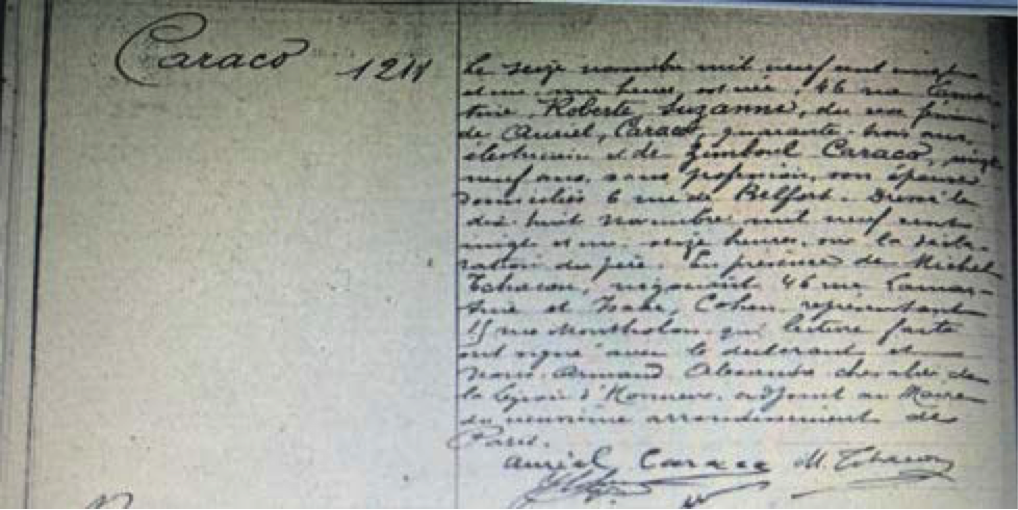 Caraco 1211
Le seize novembre mil neuf cent vingt
et un, une heure, est née, 46 rue Lamar-
tine, Roberte, Suzanne, du sexe féminin
de Auriel, Caraco, quarante-trois ans,
électricien et de Zimboul Caraco, vingt
neuf ans, sans profession, son épouse
domiciliés 6 rue de Belfort. Dressé le
dix-huit novembre mil neuf cent
vingt et un, seize heures, sur la décla-
ration du père. En présence de Michel
Tchacon, négociant, 46 rue Lamar-
tine et Cohen, représentant
15 rue Montholon, qui, lecture faite
ont signé avec le déclarant et
Nous, Armand chevalier de
la Légion d'Honneur, adjoint au Maire
du neuvième arrondissement de
Paris.
Auriel Caraco M. Tchacon